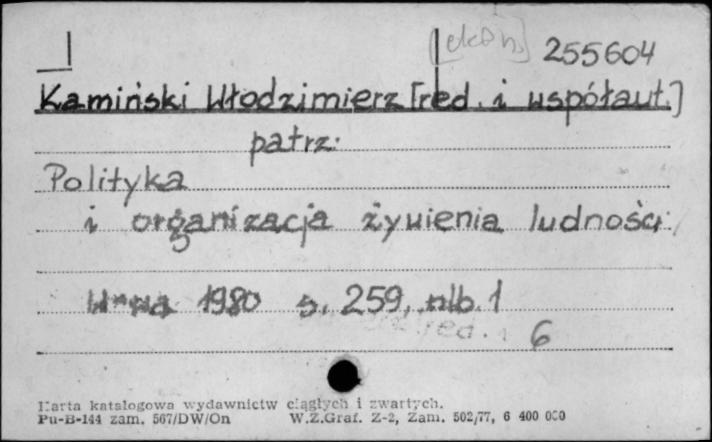 [ekon]
255604
Kamiński Włodzimierz [red. i współaut.]
patrz:
Polityka
i organizacja żywienia ludności
W-wa 1980 s. 259, nlb. 1
red. 6
Karta katalogowa wydawnictw ciągłych i zwartych.
Pu-B-144 zam. 567/DW/On W.Z.Graf. Z-2, Zam. 502/77, 6 400 000